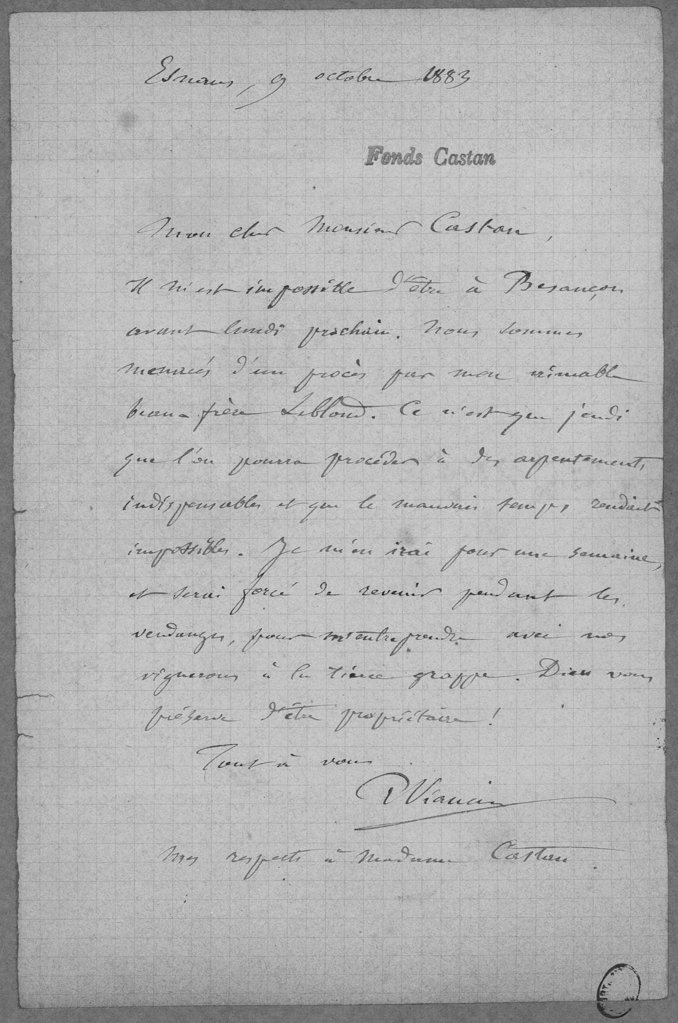 Esnans, 9 octobre 1883
Fonds Castan
Mon cher Monsieur Castan,
Il m'est impossible d'être à Besançon
avant lundi prochain. Nous sommes
menacés d'un procès par mon aimable
beau-frère Leblond. Ce n'est que jeudi
que l'on pourra procéder à des arpentements
indispensables et que le mauvais temps rendait
impossibles. Je m'en irai pour une semaine,
et serai forcé de revenir pendant les
vendanges, pour m'entreprendre avec nos
vignerons à la grappe. Dieu vous
préserve d'être propriétaire !
Tout à vous
P Viancin
Mes respects à Madame Castan.